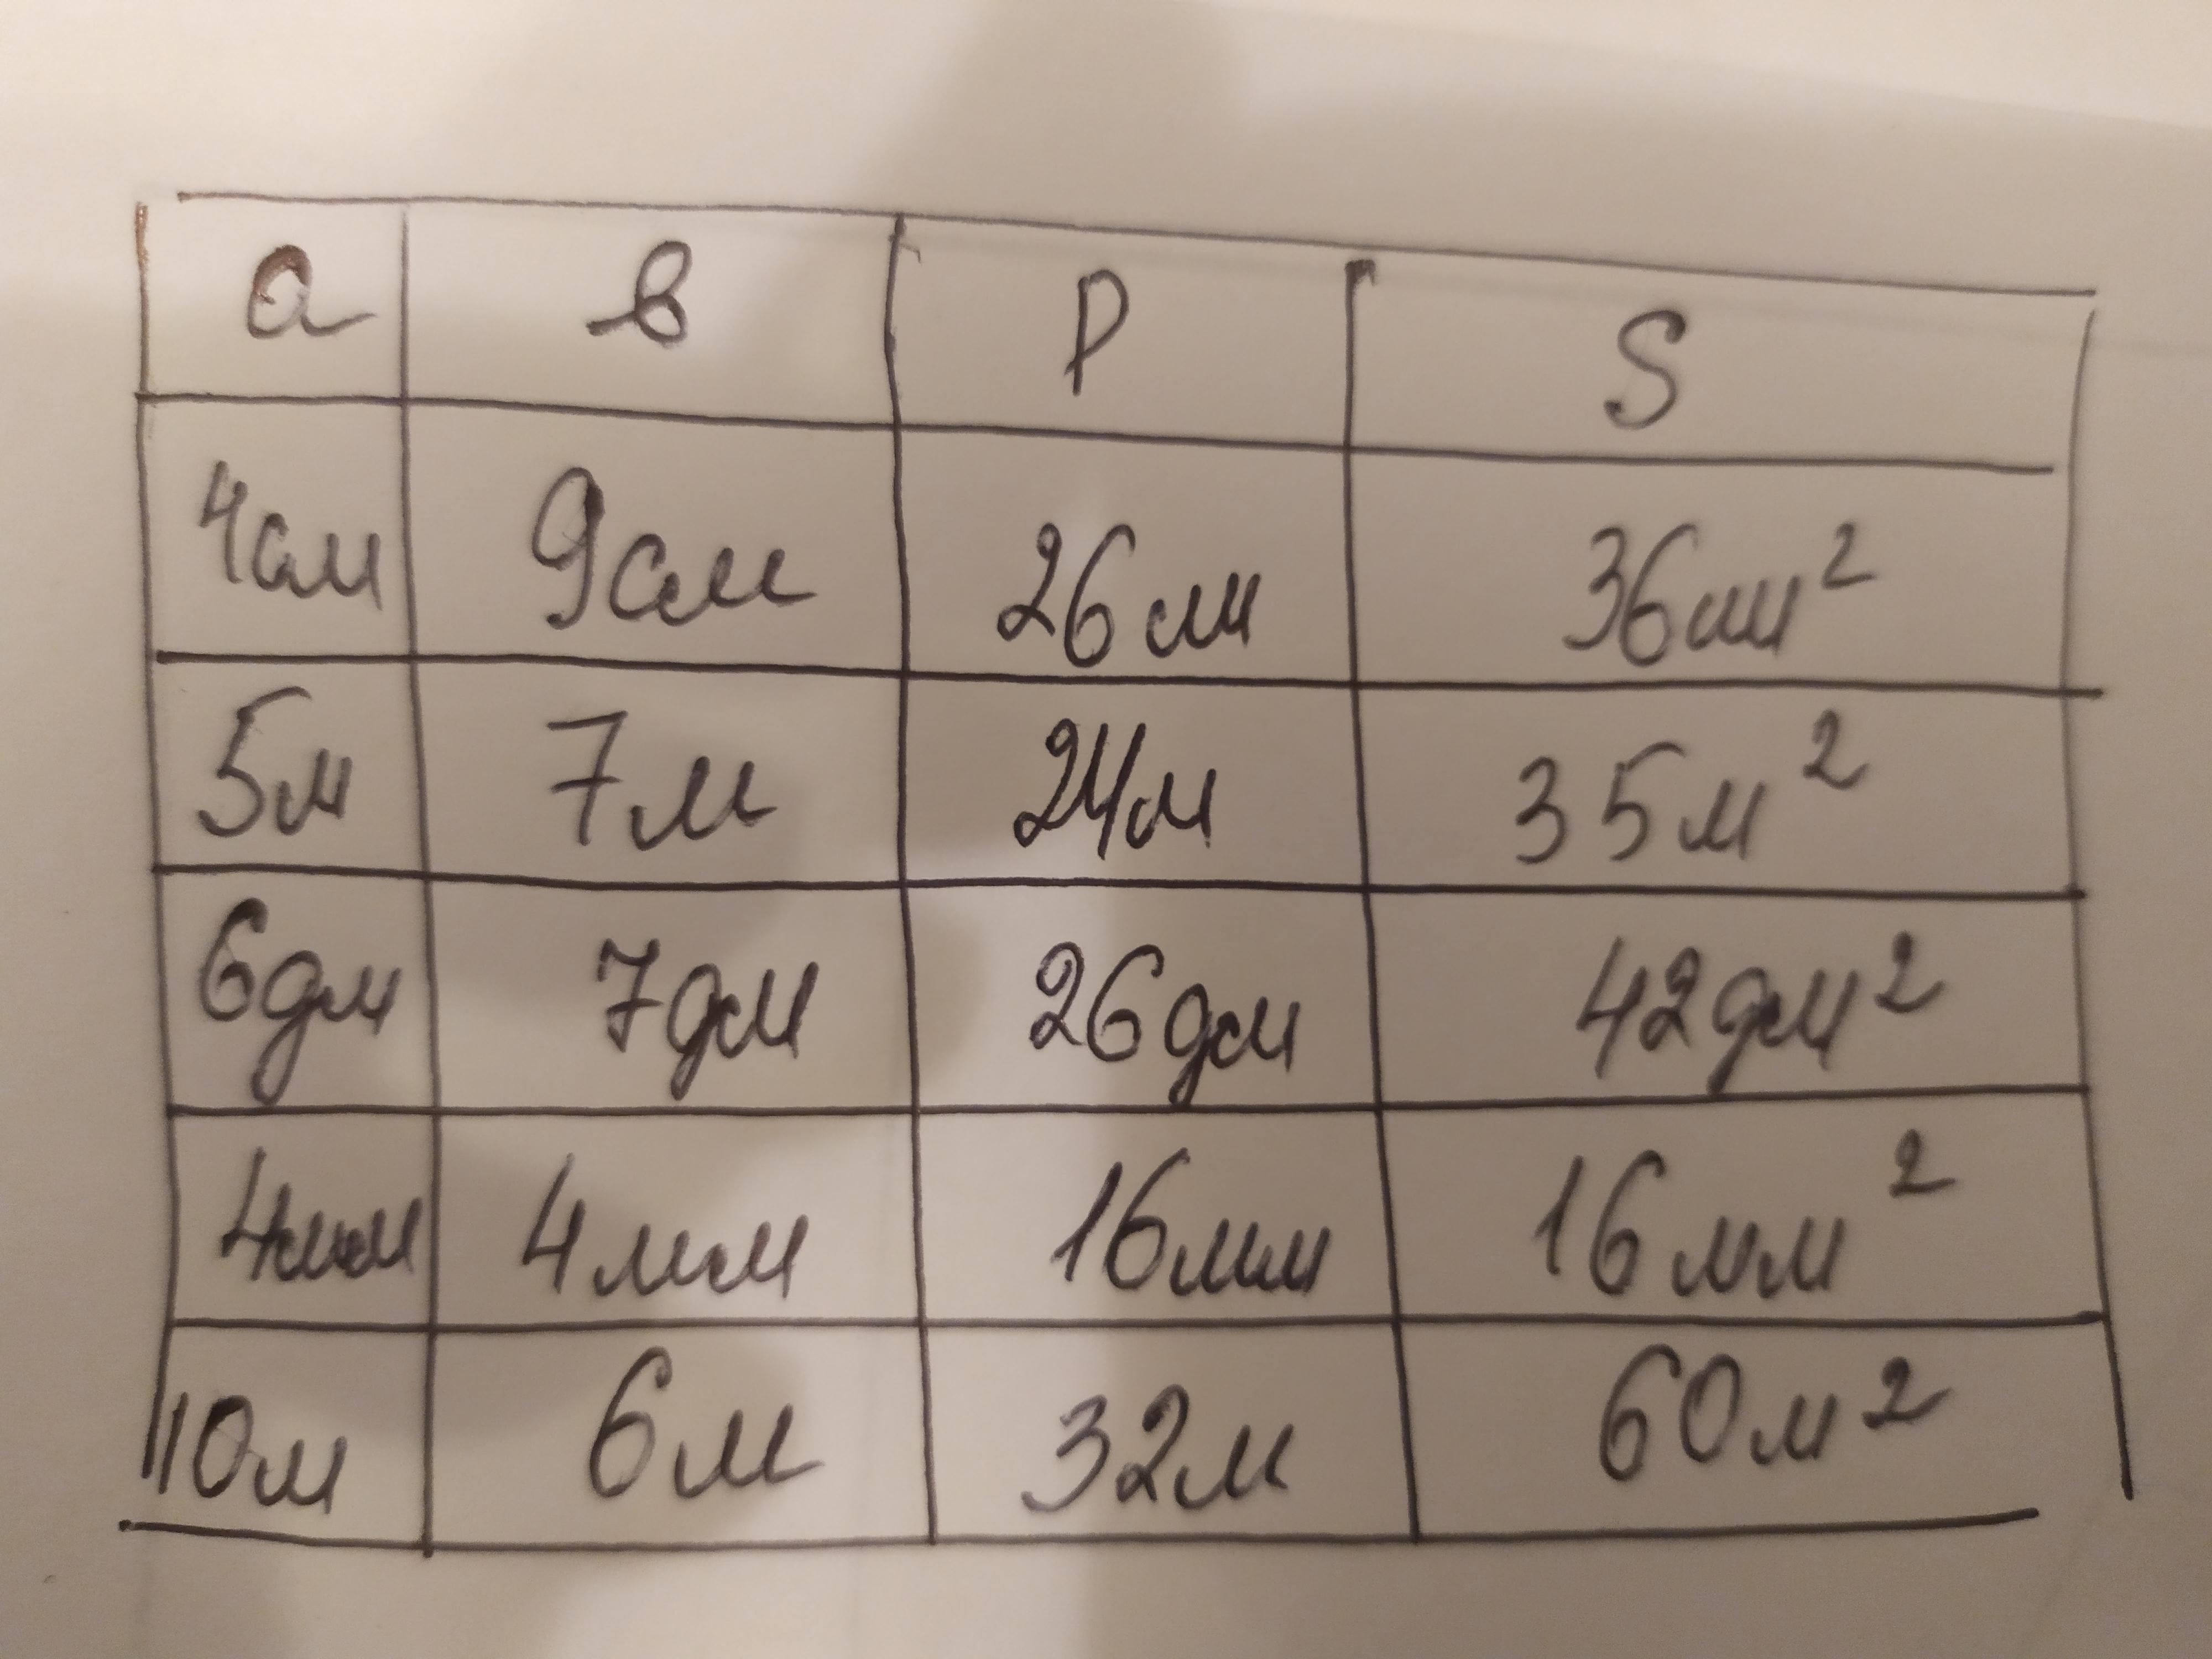 а в P S
4см 9см 26см 36см²
5м 7м 24м 35м²
6дм 7дм 26дм 42дм²
4мм 4мм 16мм 16мм²
10м 6м 32м 60м²